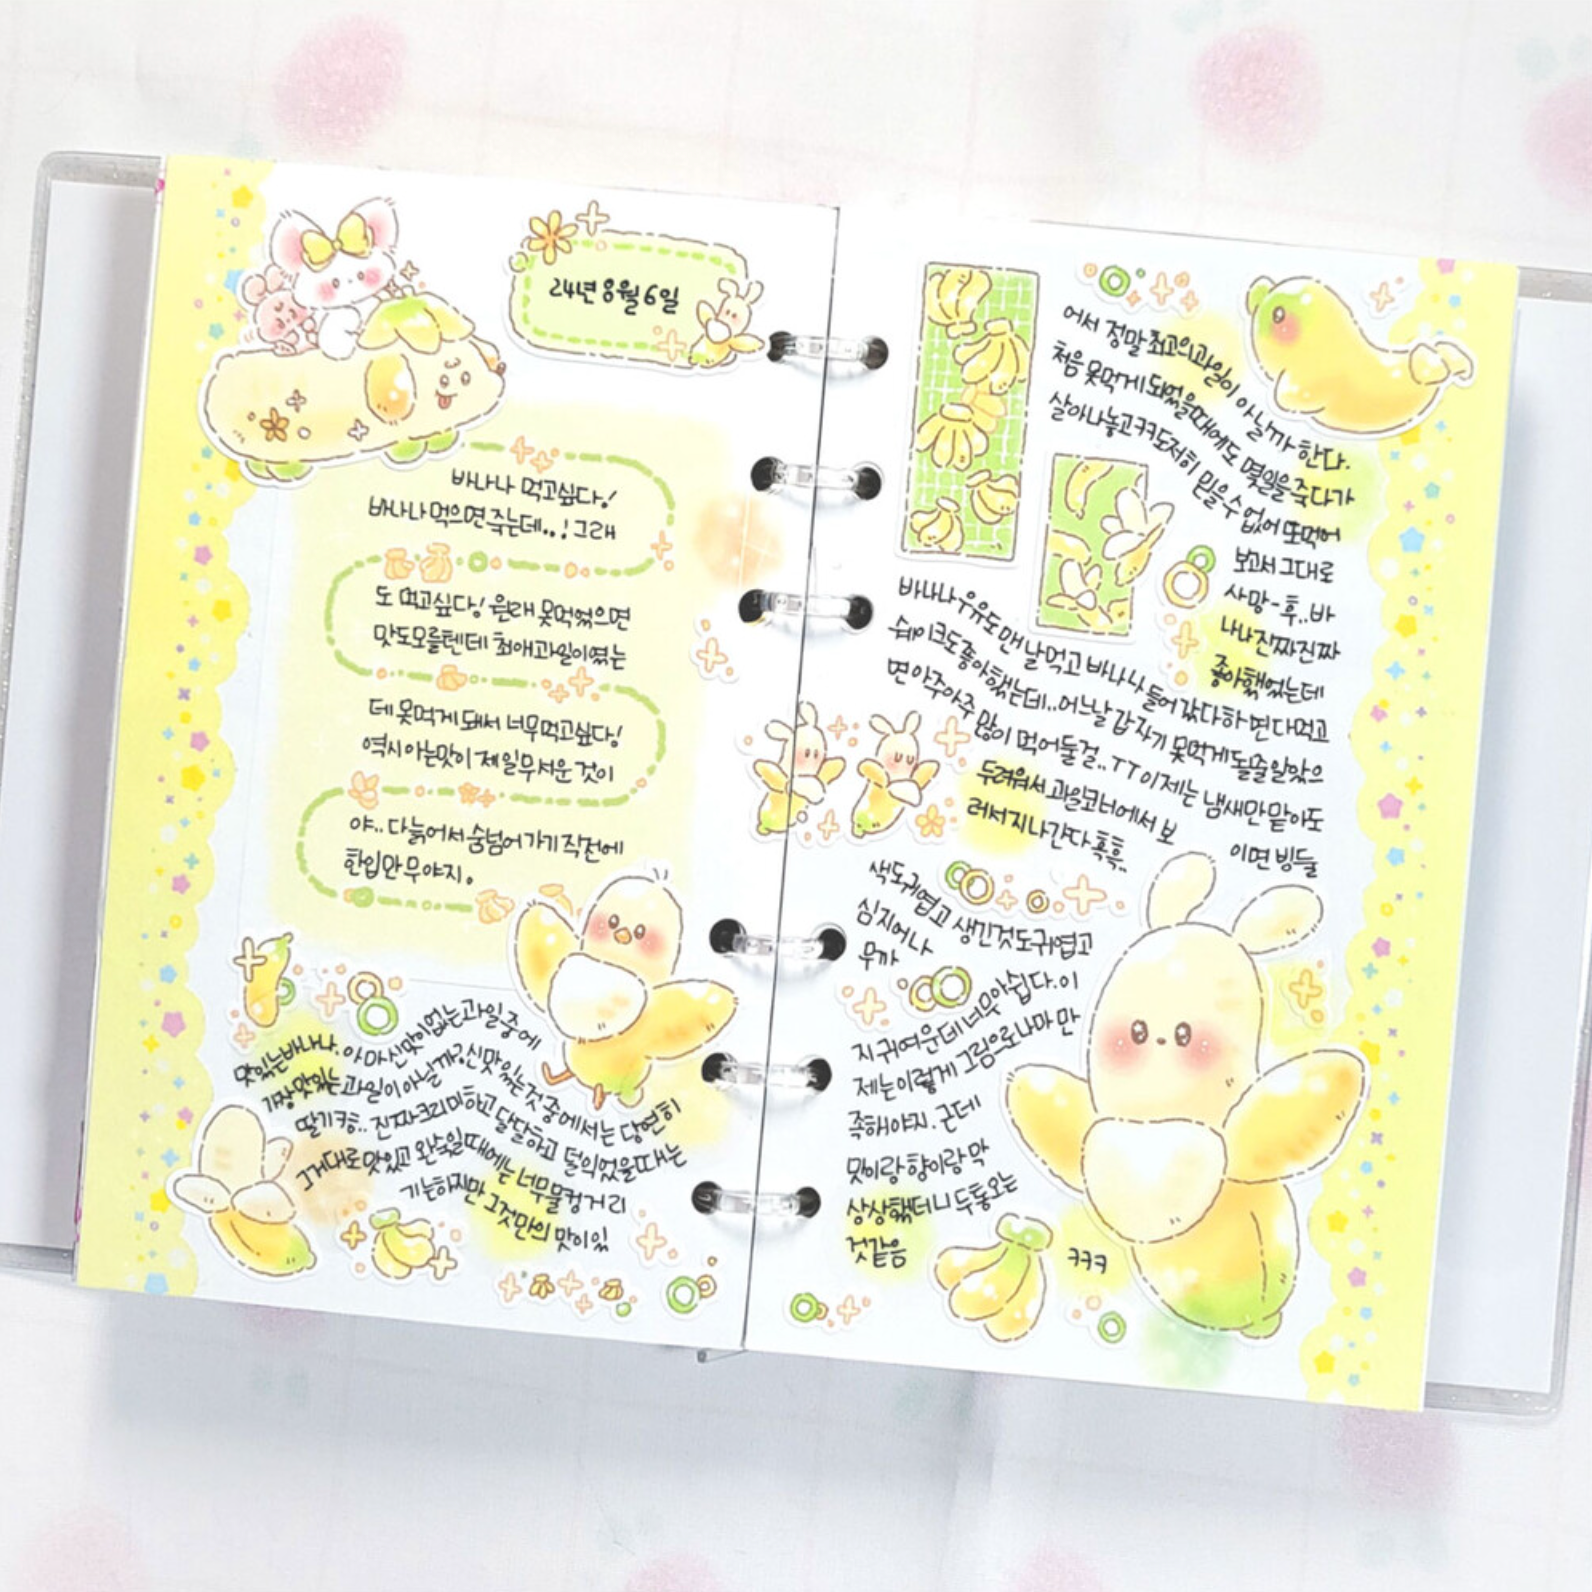 24년 8월 6일
바나나 먹고싶다!
바나나 먹으면 죽는데..! 그래
도 먹고싶다! 원래 못먹었으면
맛도모를텐데 최애과일이였는
데 못먹게 돼서 너무먹고싶다!
역시 아는맛이 제일무서운 것이
야.. 다늙어서 숨넘어가기 직전에
한입만 무야지.
맛있는바나나. 아마 신맛이없는 과일 중에
가장 맛있는 과일이 아닐까? 신맛 있는것 중에서는 당연히
딸기 ㅋㅎ.. 진짜 크리미하고 달달하고 덜익었을때는
그거대로 맛있고 완숙일때에는 너무물컹거리
기는하지만 그것만의 맛이있
어서 정말 최고의과일이 아닐까 한다.
처음 못먹게 되었을때에도 몇일을 죽다가
살아나놓고 ㅋㅋ 도저히 믿을 수 없어 또먹어
보고서 그대로
사망- 후.. 바
나나 진짜진짜
좋아했었는데
바나나우유도 맨날 먹고 바나나 들어갔다하면 다먹고
쉐이크도좋아했는데.. 어느날 갑자기 못먹게될줄알았으
면 아주아주 많이 먹어둘걸.. ㅜㅜ 이제는 냄새만 맡아도
두려워서 과일코너에서 보이면 빙둘
러서지나간다 흑흑..
색도귀엽고 생긴것도귀엽고
심지어 나무까
지 귀여운데 너무아쉽다. 이
제는이렇게 그림으로나마 만
족해야지. 근데
맛이랑향이랑 막
상상했더니 두통오는
것같음
ㅋㅋㅋ